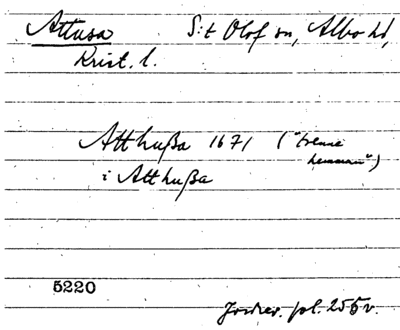 Attusa S:t Olof sn, Albo hd,
Krist. l.
Atthußa 1671 ("trenne
hemman")
i Atthußa
5220
Jordrev. fol. 255v.